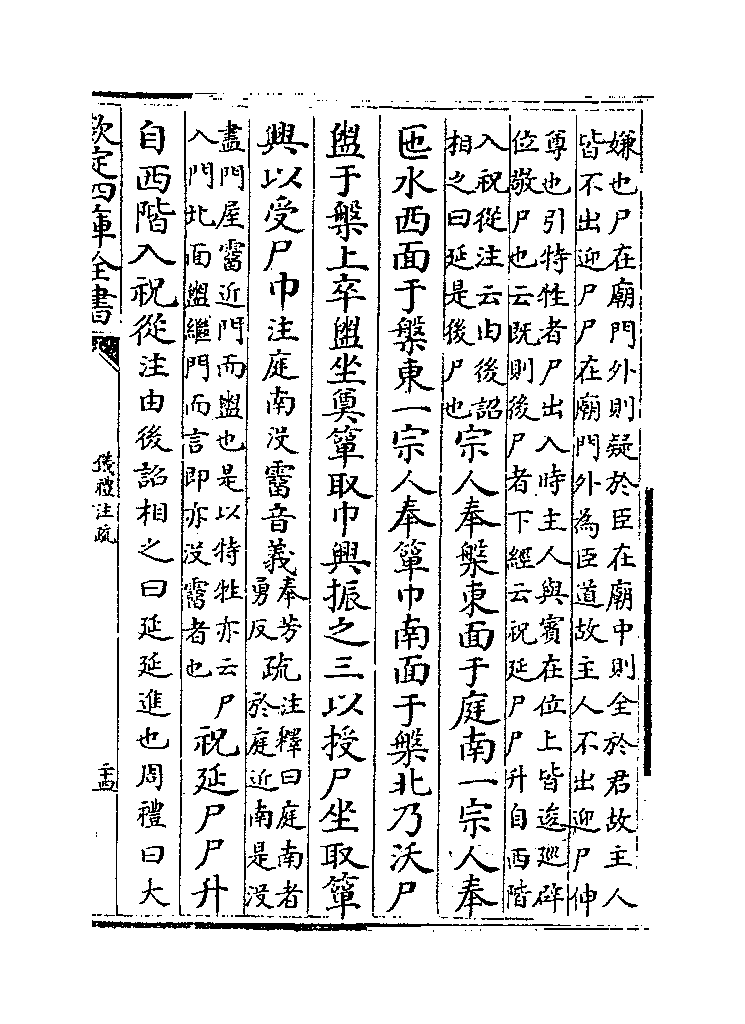 嫌也尸在廟門外則疑於臣在廟中則全於君故主人
皆不出迎尸尸在廟門外為臣道故主人不出迎尸伸
尊也引特牲者尸出入時主人與賓在位上皆逡廵辟
位敬尸也云既則後尸者下經云祝延尸尸升自西階
入祝從注云由後詔
相之曰延是後尸也
宗人奉槃東面于庭南一宗人奉
匜水西面于槃東一宗人奉簞巾南面于槃北乃沃尸
盥于槃上卒盥坐奠簞取巾興振之三以授尸坐取簞
興以受尸巾注庭南没霤音義
奉芳
勇反
疏
注釋曰庭南者
於庭近南是没
盡門屋霤近門而盥也是以特牲亦云尸
入門北面盥繼門而言即亦没霤者也
祝延尸尸升
自西階入祝從注由後詔相之曰延延進也周禮曰大
欽定四庫全書
儀禮注疏
二十四